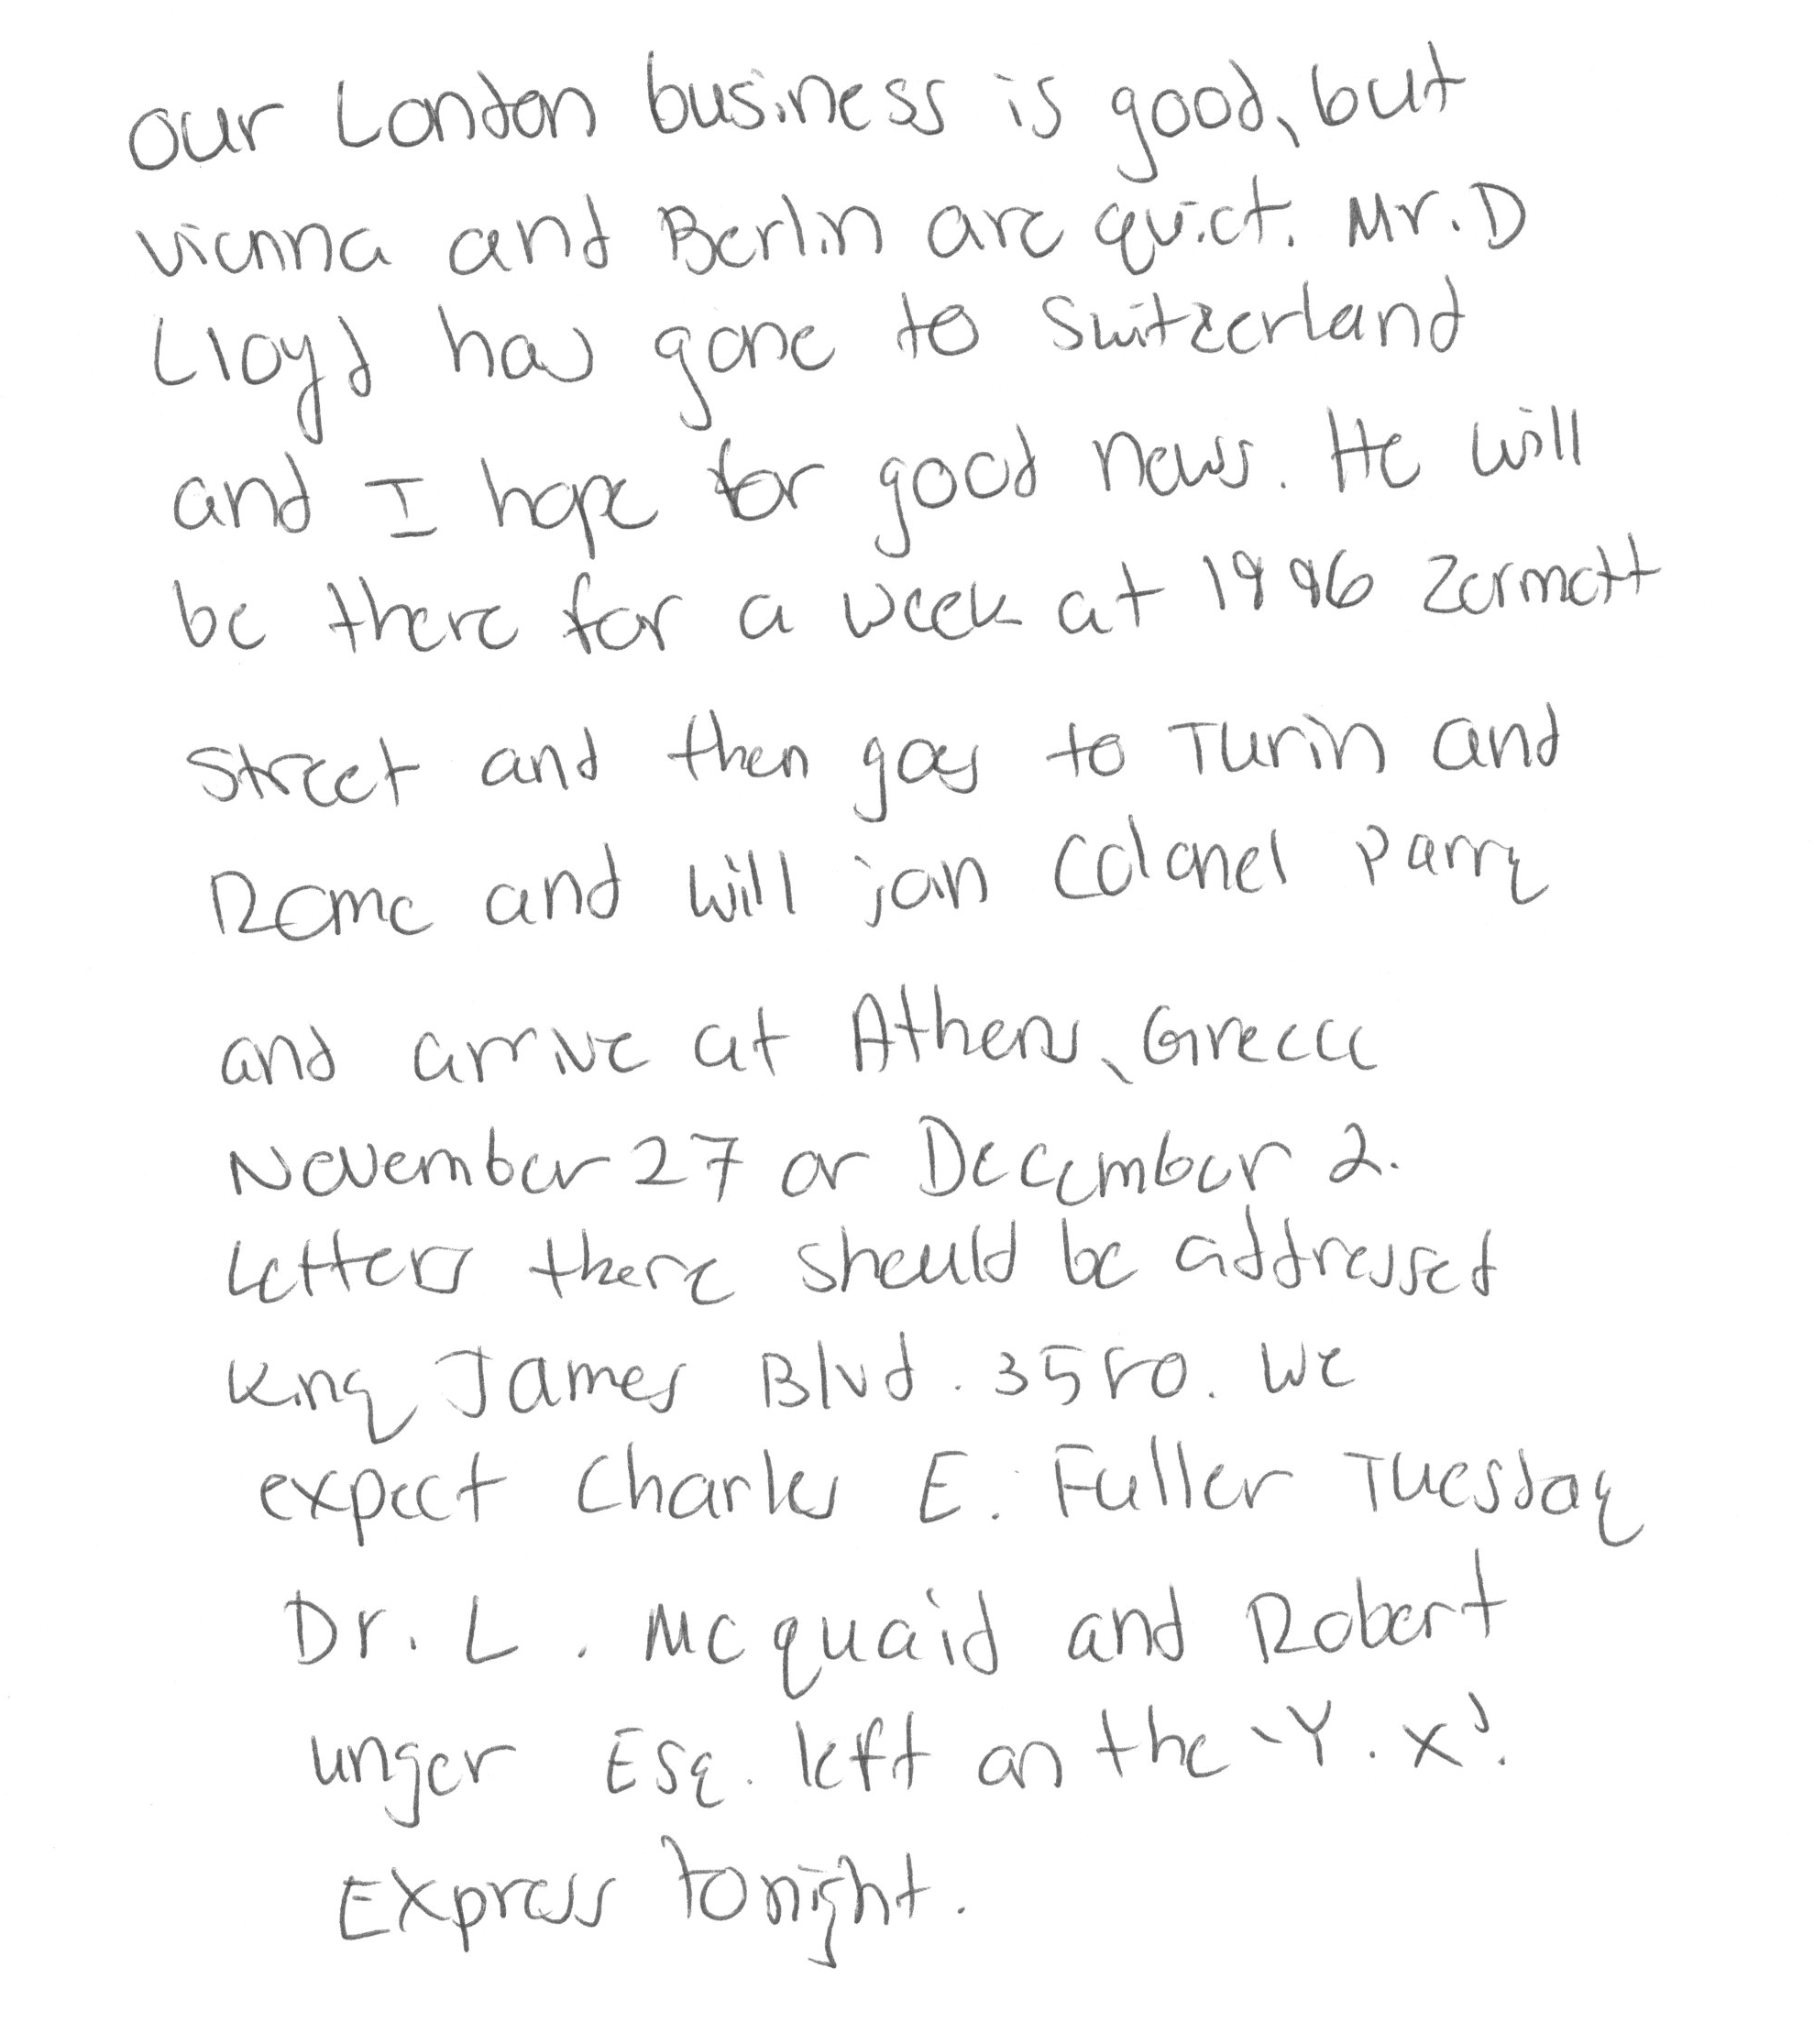 our London business is good, but
Vienna and Berlin are quiet. Mr. D
Lloyd has gone to Switzerland
and I hope for good news. He will
be there for a week at 1996 Zermatt
Street and then goes to Turin and
Rome and will join Colonel Parry
and arrive at Athens, Greece
November 27 or December 2.
Letters there should be addressed
King James Blvd. 3580. We
expect Charles E. Fuller Tuesday
Dr. L. McQuaid and Robert
Unger Esq. left on the 'Y. X'.
Express tonight.